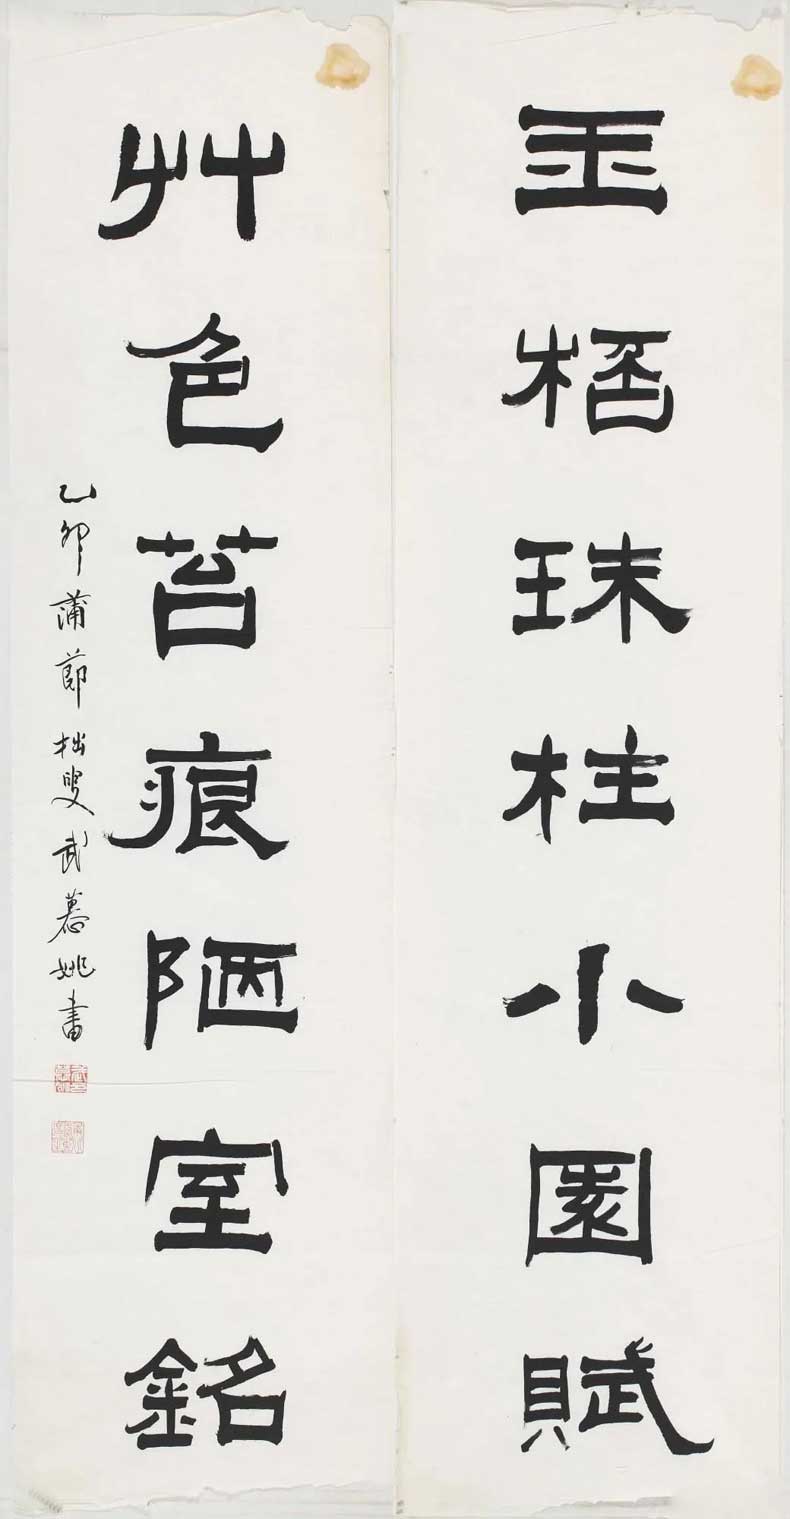 玉桮珠柱小園賦
艸色苔痕陋室銘
乙卯蒲節拙叟武慕姚書